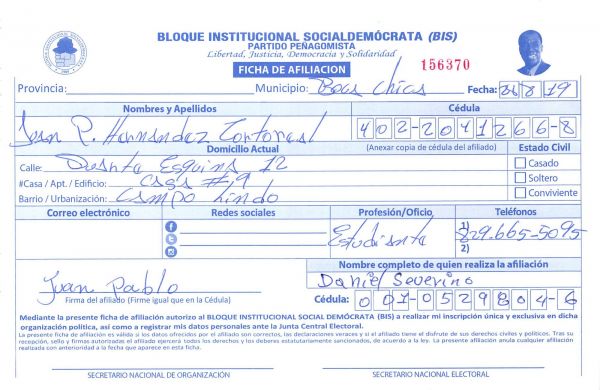 BLOQUE INSTITUCIONAL SOCIALDEMÓCRATA (BIS)
PARTIDO PEÑAGOMISTA
Libertad, Justicia, Democracia y Solidaridad
FICHA DE AFILIACION
156370
Provincia: Municipio: Boca Chica Fecha: 8 19
Nombres y Apellidos Cédula
Juan P. Hernández 402-2041266-8
Domicilio Actual (Anexar copia de cédula del afiliado) Estado Civil
Calle: Duarte Esquina 12 Casado
#Casa / Apt. / Edificio: casa #9 Soltero
Barrio / Urbanización: Campo Lindo Conviviente
Correo electrónico Redes sociales Profesión/Oficio Teléfonos
Estudiante 1) 829.665-5095
2)
Nombre completo de quien realiza la afiliación
Juan Pablo Daniel Severino
Firma del afiliado (Firme igual que en la Cédula) Cédula: 001-0529804-6
Mediante la presente ficha de afiliación autorizo al BLOQUE INSTITUCIONAL SOCIAL DEMÓCRATA (BIS) a realizar mi inscripción única y exclusiva en dicha
organización política, así como a registrar mis datos personales ante la Junta Central Electoral.
La presente ficha de afiliación es válida si los datos ofrecidos por el afiliado son correctos, las declaraciones veraces y si el afiliado tiene el disfrute de sus derechos civiles y políticos. Tras su
recepción, sello y firmas autorizadas el afiliado ejercerá todos los derechos y los deberes estatutariamente sancionados, de acuerdo a la ley. La presente afiliación anula cualquier afiliación
realizada con anterioridad a la fecha que aparece en esta ficha.
SECRETARIO NACIONAL DE ORGANIZACIÓN SECRETARIO NACIONAL ELECTORAL